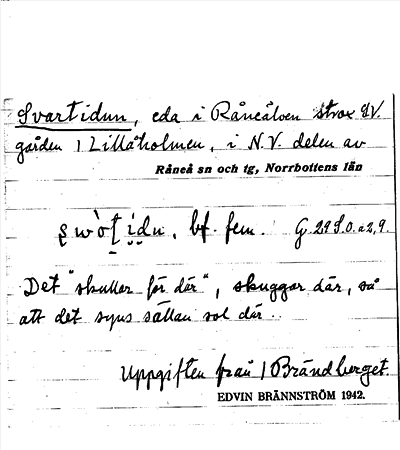 Svartidun, eda i Råneälven strax SV.
gården 1 Lillåholmen, i N.V. delen av
Råneå sn och tg, Norrbottens län
bf. fem. G. 29 S.O. a2,9.
Det "skullar för där", skuggar där, så
att det syns sällan sol där.
Uppgiften från 1 Brändberget.
EDVIN BRÄNNSTRÖM 1942.